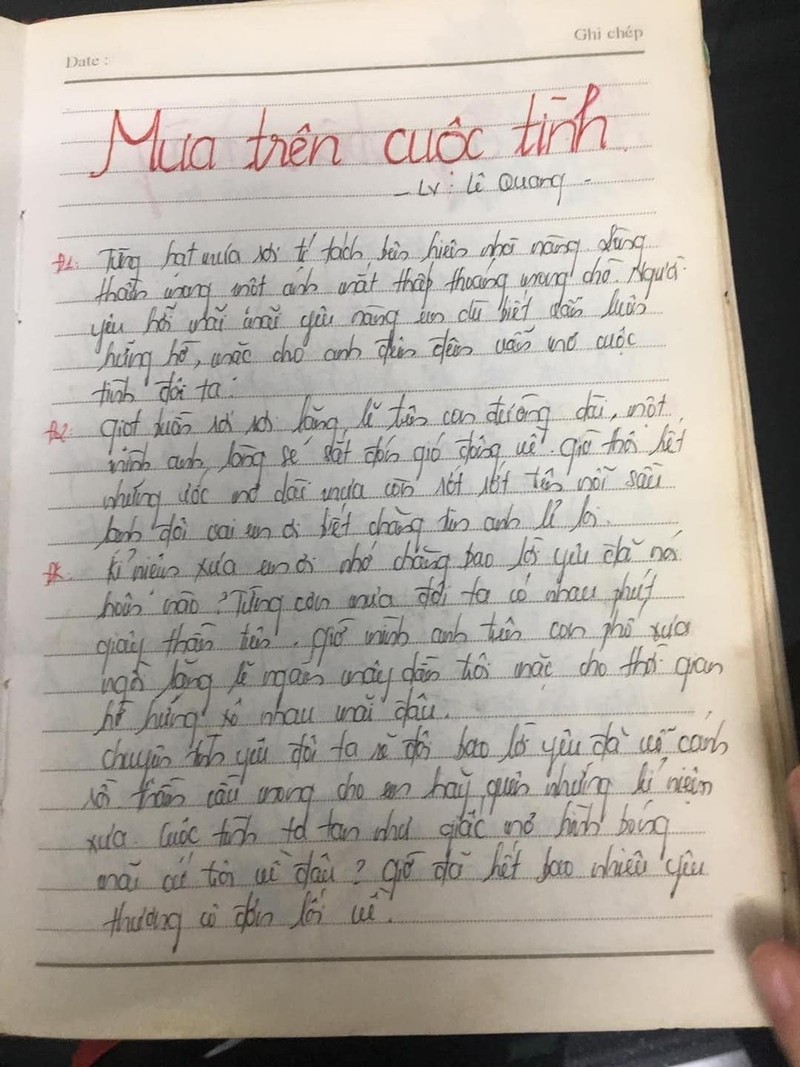 Ghi chép
Date :
Mưa trên cuộc tình
- LV : Lê Quang -
Đ1. Từng hạt mưa rơi tí tách bên hiên nhớ nàng đừng
thầm mong một ánh mắt thấp thoáng mong chờ. Người
yêu hỡi mãi mãi yêu nàng em dù biết dẫu luôn
hững hờ, mặc cho anh đêm đêm vẫn mơ cuộc
tình đôi ta.
Đ2: giọt buồn rơi rơi lặng lẽ trên con đường dài, một
mình anh, lòng se sắt đón gió đông về. giờ thôi hết
những ước mơ dài mưa còn rớt rớt trên nỗi sầu
anh đời em ơi biết chăng tim anh lẻ loi.
ĐK. Kỉ niệm xưa em ơi nhớ chăng bao lời yêu đã nói
hôm nào? Từng cơn mưa đôi ta có nhau phút
giây thần tiên. giờ mình anh trên con phố xưa
ngồi lặng lẽ ngắm mây dần trôi mặc cho thời gian
hờ hững xô nhau mãi đâu.
chuyện tình yêu đôi ta sẽ đôi bao lời yêu đã vỡ cánh
rồi thầm cầu mong cho em hãy quên những kỉ niệm
xưa. Cuộc tình ta tan như giấc mơ hình bóng
mãi cứ trôi về đâu? giờ đã hết bao nhiêu yêu
thương cô đơn lối về.